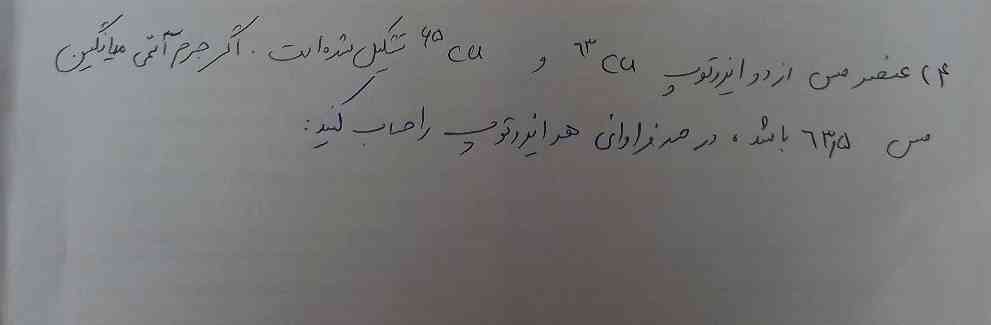 ۴) عنصر مس از دو ایزوتوپ ⁶³Cu و ⁶⁵Cu تشکیل شده است. اگر جرم اتمی میانگین
مس ۶۳٫۵ باشد، درصد فراوانی هر ایزوتوپ را حساب کنید: